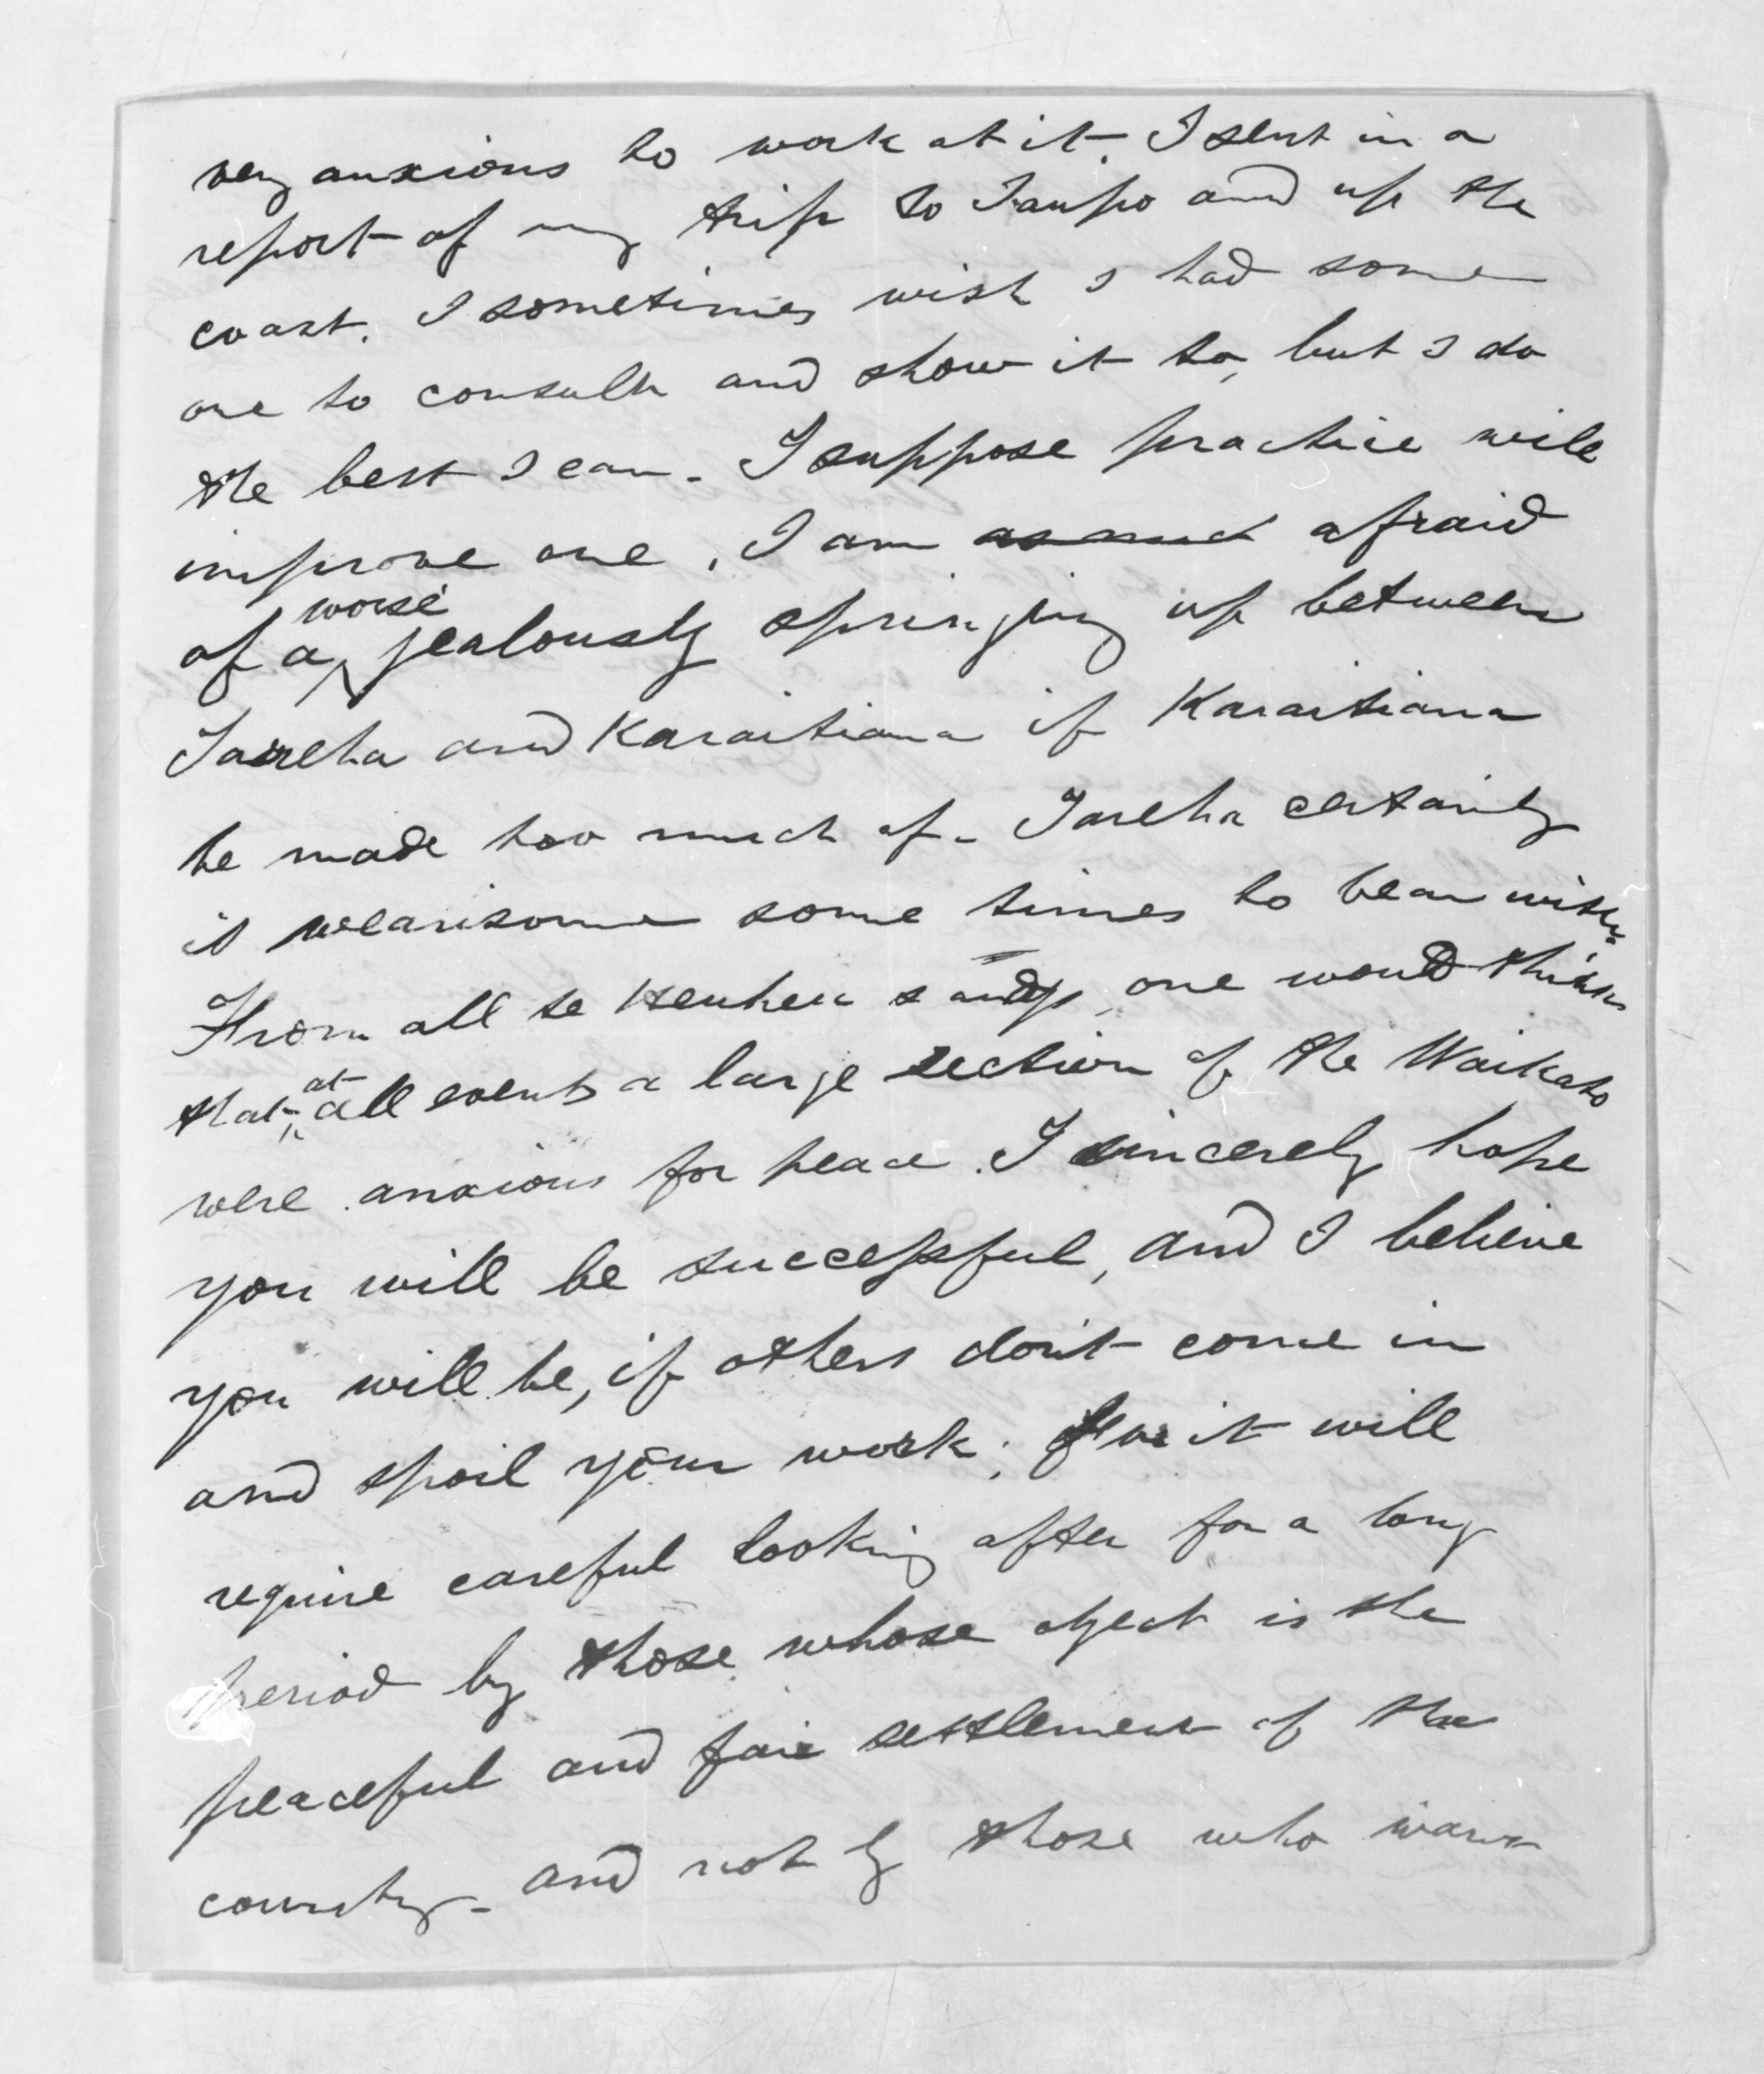 very anxious to work at it. I sent in a
report of my trip to Taupo and up the
coast. I sometimes wish I had some
one to consult and show it to, but I do
the best I can - I suppose practice will
improve one. I am afraid
of a worse jealously springing up between
Tareha and Karaitiana if Karaitiana
be made too much of - Tareha certainly
is wearisome some times to bear with.
From all te Heuheu says, one would think
that at all events a large section of the Waikato
were anxious for peace. I sincerely hope
you will be successful, and I believe
you will be, if others don't come in
and spoil your work; for it will
require careful looking after for a long
period by those whose object is the
peaceful and fair settlement of the
country - and not by those who want